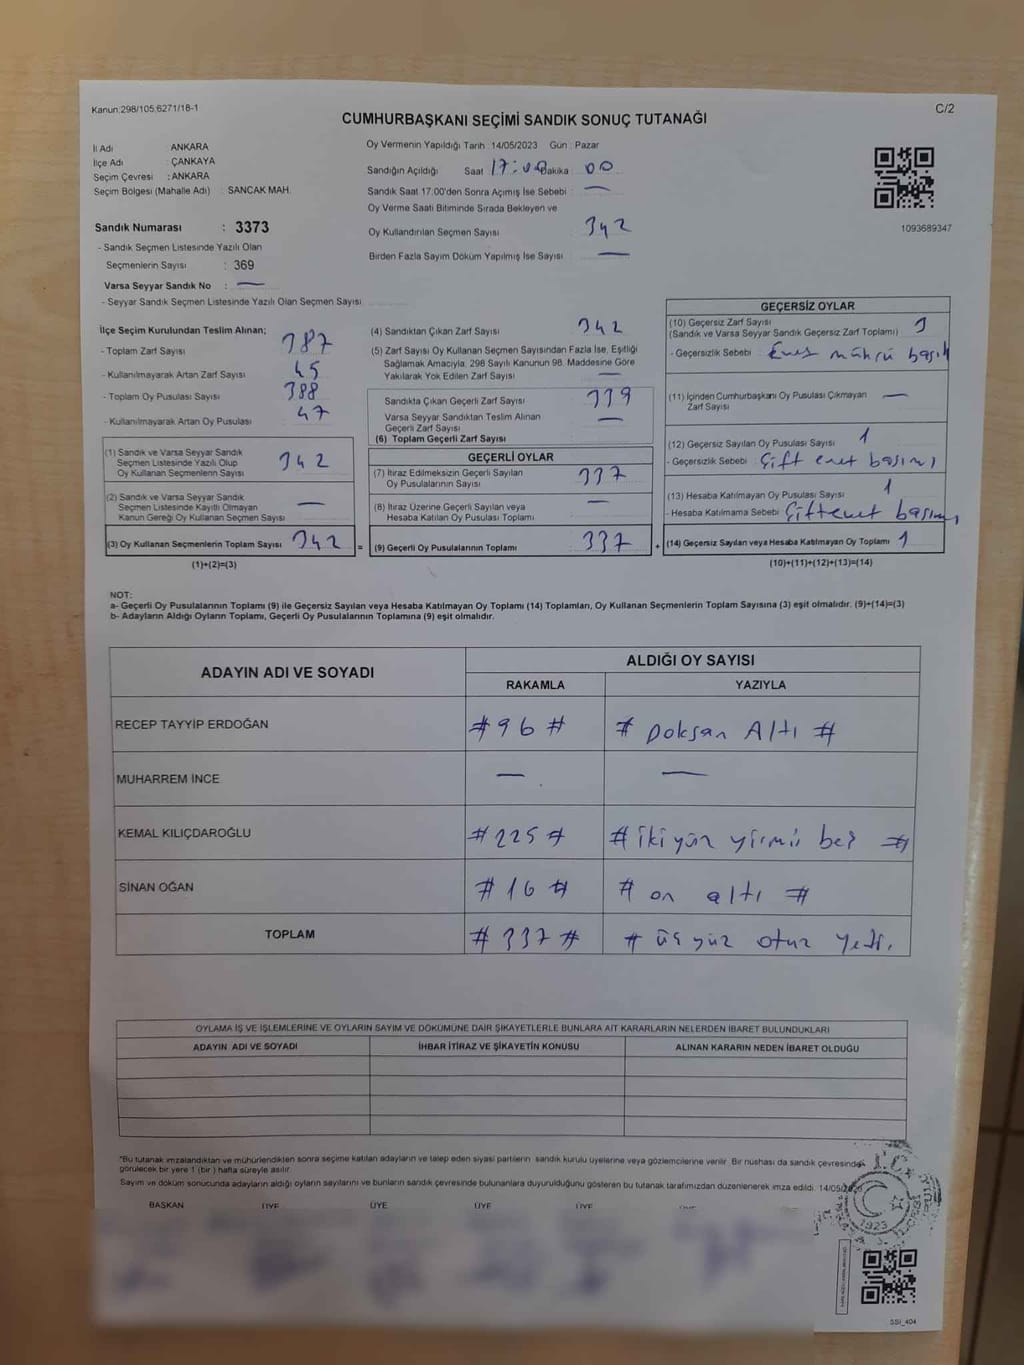 Kanun:298/105,6271/18-1
C/2
CUMHURBAŞKANI SEÇİMİ SANDIK SONUÇ TUTANAĞI
İl Adı ANKARA
İlçe Adı : ÇANKAYA
Seçim Çevresi : ANKARA
Seçim Bölgesi (Mahalle Adı) : SANCAK MAH.
Sandık Numarası : 3373
- Sandık Seçmen Listesinde Yazılı Olan
Seçmenlerin Sayısı : 369
Varsa Seyyar Sandık No : —
- Seyyar Sandık Seçmen Listesinde Yazılı Olan Seçmen Sayısı
Oy Vermenin Yapıldığı Tarih : 14/05/2023 Gün : Pazar
Sandığın Açıldığı Saat 17:00 Dakika 00
Sandık Saat 17.00'den Sonra Açımış İse Sebebi : —
Oy Verme Saati Bitiminde Sırada Bekleyen ve
Oy Kullandırılan Seçmen Sayısı 342
Birden Fazla Sayım Döküm Yapılmış İse Sayısı —
1093689347
İlçe Seçim Kurulundan Teslim Alınan;
- Toplam Zarf Sayısı 387
- Kullanılmayarak Artan Zarf Sayısı 45
- Toplam Oy Pusulası Sayısı 388
- Kullanılmayarak Artan Oy Pusulası 47
(1) Sandık ve Varsa Seyyar Sandık
Seçmen Listesinde Yazılı Olup
Oy Kullanan Seçmenlerin Sayısı 342
(2) Sandık ve Varsa Seyyar Sandık
Seçmen Listesinde Kayıtlı Olmayan
Kanun Gereği Oy Kullanan Seçmen Sayısı —
(3) Oy Kullanan Seçmenlerin Toplam Sayısı 342 =
(1)+(2)=(3)
(4) Sandıktan Çıkan Zarf Sayısı 342
(5) Zarf Sayısı Oy Kullanan Seçmen Sayısından Fazla İse, Eşitliği
Sağlamak Amacıyla, 298 Sayılı Kanunun 98. Maddesine Göre
Yakılarak Yok Edilen Zarf Sayısı —
Sandıkta Çıkan Geçerli Zarf Sayısı 339
Varsa Seyyar Sandıktan Teslim Alınan
Geçerli Zarf Sayısı —
(6) Toplam Geçerli Zarf Sayısı
GEÇERLİ OYLAR
(7) İtiraz Edilmeksizin Geçerli Sayılan
Oy Pusulalarının Sayısı 337
(8) İtiraz Üzerine Geçerli Sayılan veya
Hesaba Katılan Oy Pusulası Toplamı —
(9) Geçerli Oy Pusulalarının Toplamı : 337 +
GEÇERSİZ OYLAR
(10) Geçersiz Zarf Sayısı
(Sandık ve Varsa Seyyar Sandık Geçersiz Zarf Toplamı)
- Geçersizlik Sebebi mührü
(11) İçinden Cumhurbaşkanı Oy Pusulası Çıkmayan
Zarf Sayısı —
(12) Geçersiz Sayılan Oy Pusulası Sayısı 1
- Geçersizlik Sebebi Çift evet basımı
(13) Hesaba Katılmayan Oy Pusulası Sayısı 1
- Hesaba Katılmama Sebebi Çift evet basımı
(14) Geçersiz Sayılan veya Hesaba Katılmayan Oy Toplamı 1
(10)+(11)+(12)+(13)=(14)
NOT:
a- Geçerli Oy Pusulalarının Toplamı (9) ile Geçersiz Sayılan veya Hesaba Katılmayan Oy Toplamı (14) Toplamları, Oy Kullanan Seçmenlerin Toplam Sayısına (3) eşit olmalıdır. (9)+(14)=(3)
b- Adayların Aldığı Oyların Toplamı, Geçerli Oy Pusulalarının Toplamına (9) eşit olmalıdır.
ADAYIN ADI VE SOYADI ALDIĞI OY SAYISI
RAKAMLA YAZIYLA
RECEP TAYYİP ERDOĞAN # 96 # # Doksan Altı #
MUHARREM İNCE — —
KEMAL KILIÇDAROĞLU # 225 # # iki yüz yirmi beş #
SİNAN OĞAN # 16 # # on altı #
TOPLAM # 337 # # üç yüz otuz yedi.
OYLAMA İŞ VE İŞLEMLERİNE VE OYLARIN SAYIM VE DÖKÜMÜNE DAİR ŞİKAYETLERLE BUNLARA AİT KARARLARIN NELERDEN İBARET BULUNDUKLARI
ADAYIN ADI VE SOYADI İHBAR İTİRAZ VE ŞİKAYETİN KONUSU ALINAN KARARIN NEDEN İBARET OLDUĞU
*Bu tutanak imzalandıktan ve mühürlendikten sonra seçime katılan adayların ve talep eden siyasi partilerin sandık kurulu üyelerine veya gözlemcilerine verilir. Bir nüshası da sandık çevresinde
görülecek bir yere 1 (bir) hafta süreyle asılır.
Sayım ve döküm sonucunda adayların aldığı oyların sayılarını ve bunların sandık çevresinde bulunanlara duyurulduğunu gösteren bu tutanak tarafımızdan düzenlenerek imza edildi. 14/05/
BAŞKAN ÜYE ÜYE ÜYE ÜYE
T.C.
1923
SSI_404